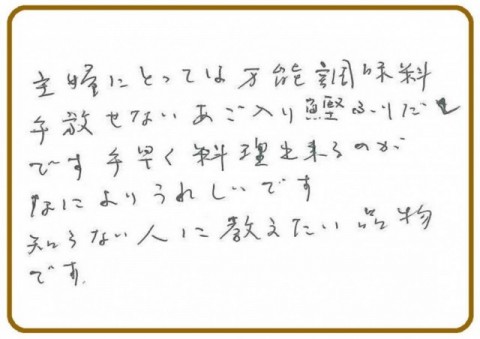 主婦にとっては万能調味料
手放せないあご入り鰹ふりだし
です 手早く料理出来るのが
なによりうれしいです
知らない人に教えたい品物
です。